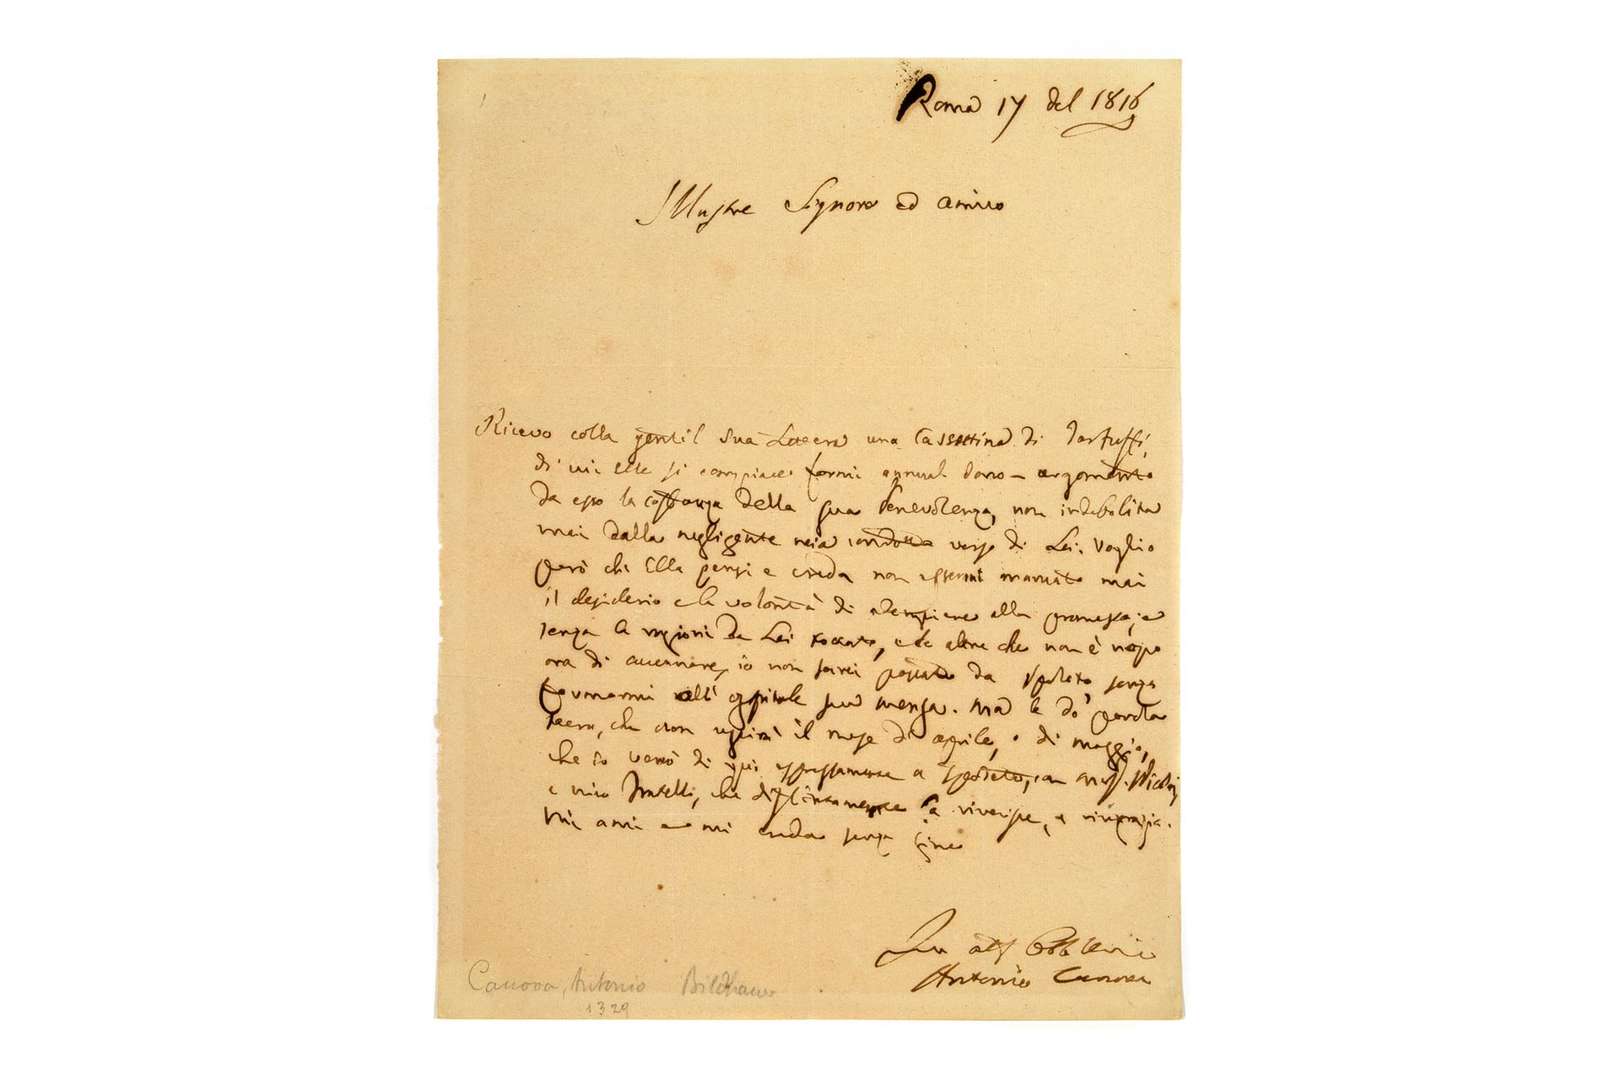 Roma 17 del 1816
Illustre Signore ed amico
Ricevo colla gentil sua Lettera una Cassettina di Tartuffi,
di cui Ella si compiace farmi annual dono – argomento
da esso la costanza della sua benevolenza, non indebolita
mai dalla negligente mia condotta verso di Lei. Voglio
però che Ella pensi e creda non essermi mancato mai
il desiderio e la volontà di adempiere alla promessa, e
senza le ragioni da Lei toccate, e le altre che non è
ora di accennare, io non sarei passato da Spoleto senza
all' ospitale sua mensa. Ma le do' parola
che non uscirà il mese di aprile, o di maggio,
che io verrò di qui espressamente a Spoleto, con
e mio fratello, che distintamente la riverisce, e ringrazia.
Mi ami e mi creda senza fine
Antonio Canova
Canova, Antonio Bildhauer
1329